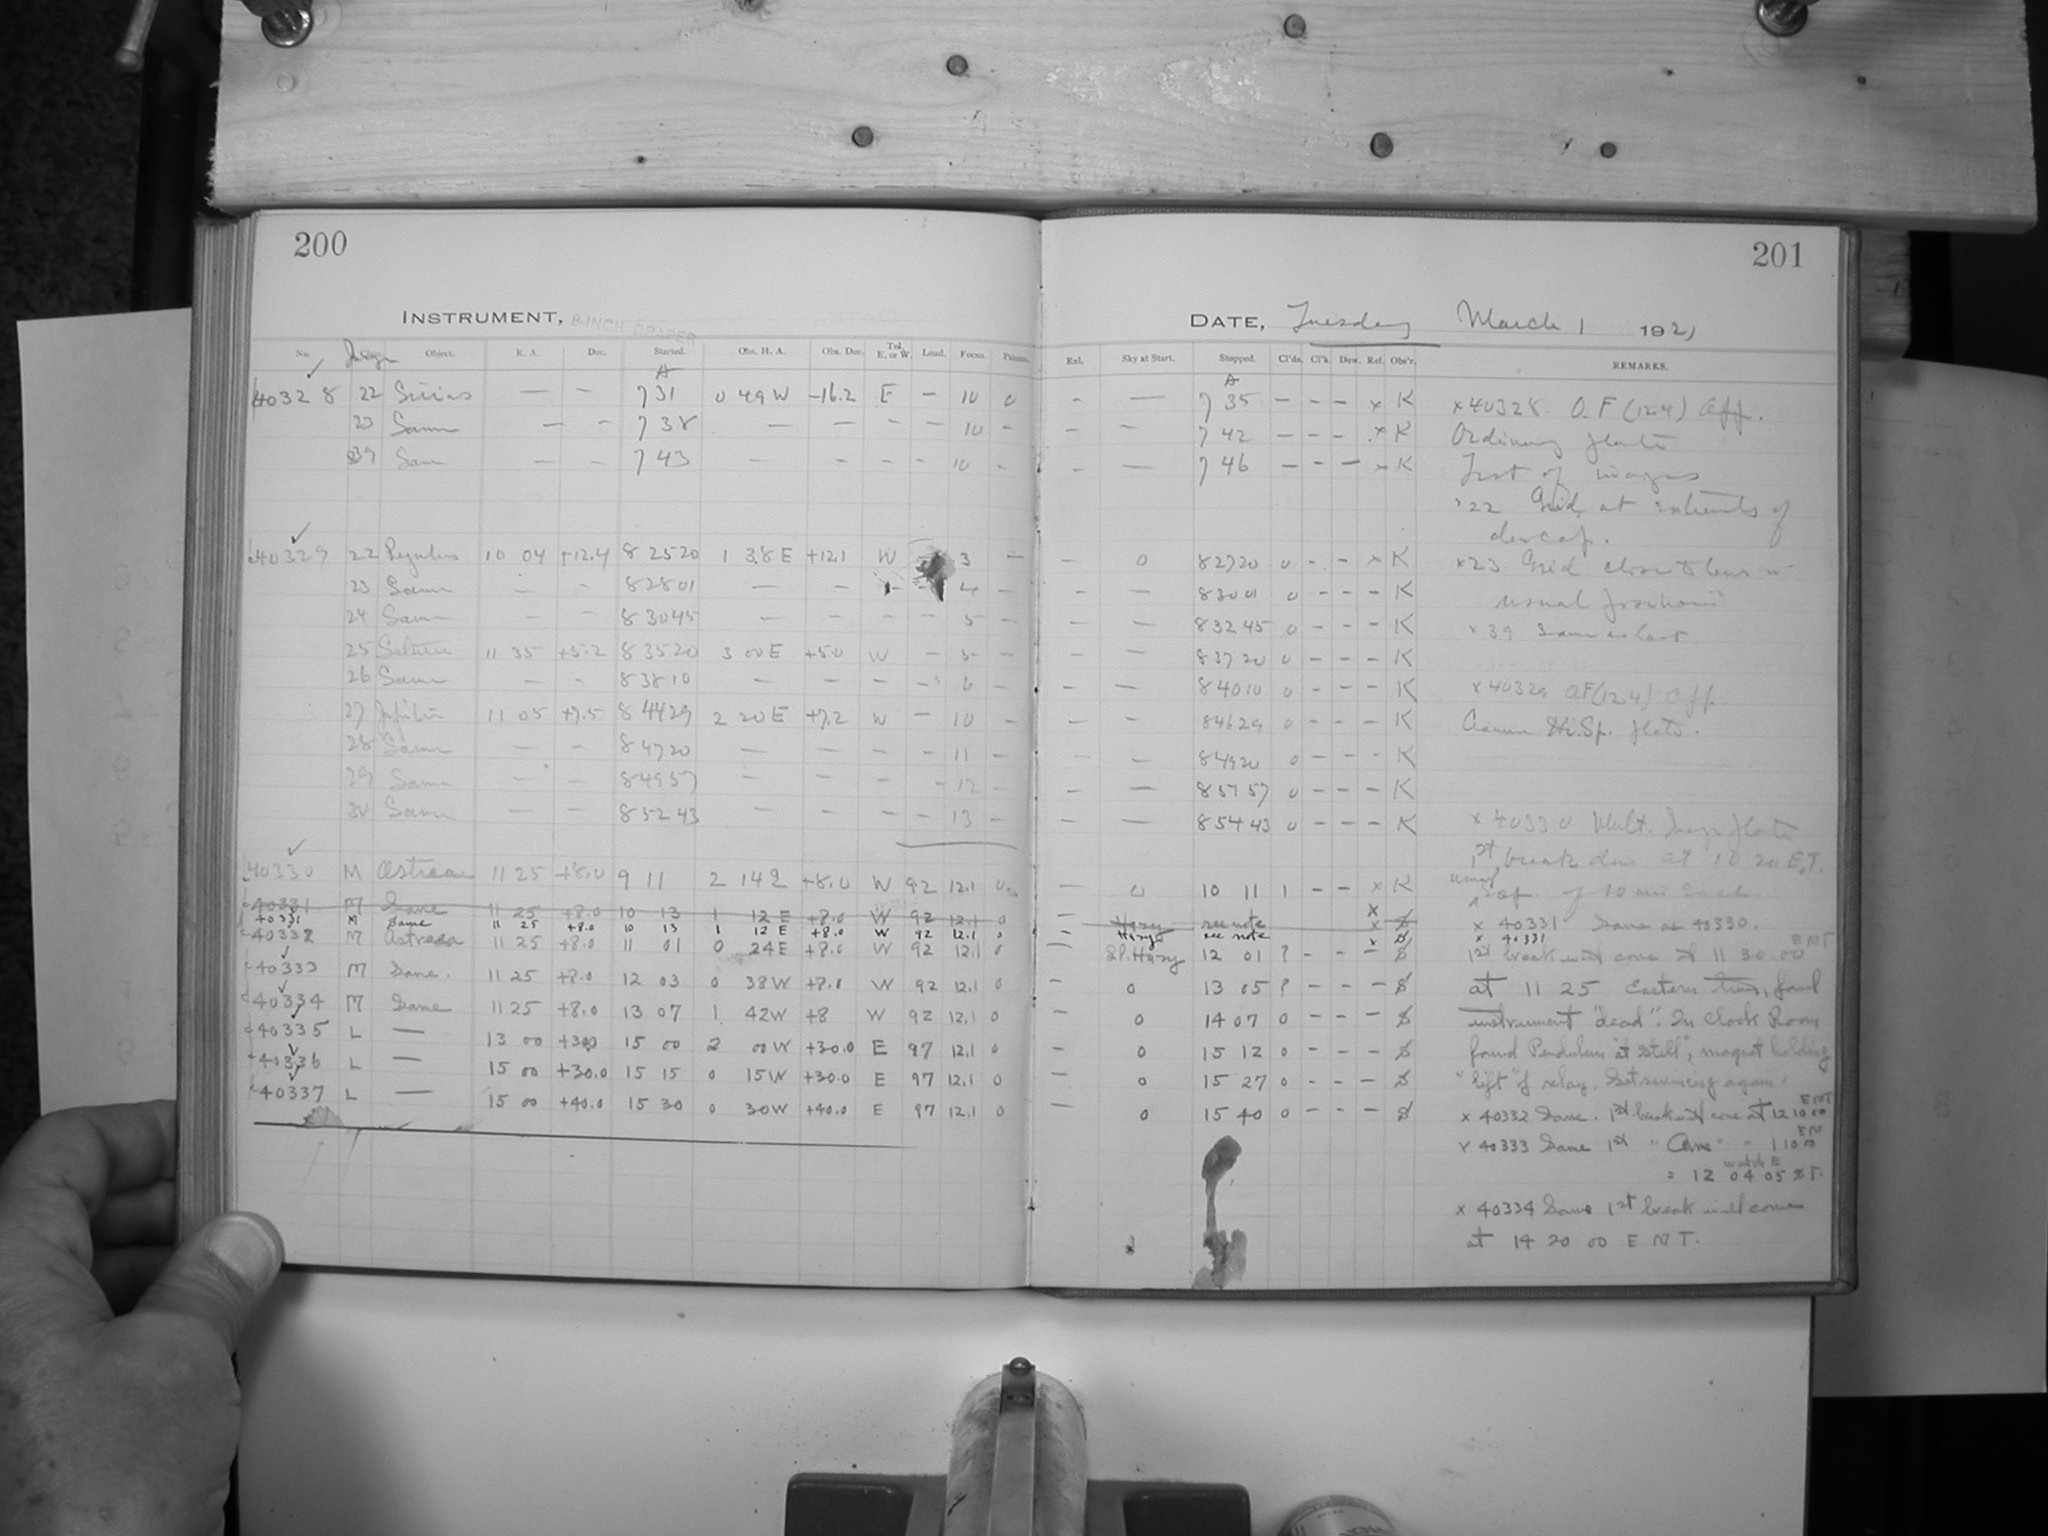 200
INSTRUMENT, 8-INCH DRAPER
No. Image Object. R. A. Dec. Started. Obs. H. A. Obs. Dec. Tel. E. or W. Load. Focus. Prisms.
A
40328 22 Sirius — — 7 31 0 49 W -16.2 E — 10 0
23 Same — — 7 38 — — — — 10 —
39 Same — — 7 43 — — — — 10 —
40329 22 Regulus 10 04 +12.4 8 25 20 1 38 E +12.1 W 3 —
23 Same — — 8 28 01 — — — — 4 —
24 Same — — 8 30 45 — — — — 5 —
25 Saturn 11 35 +5.2 8 35 20 3 00 E +5.0 W — 5 —
26 Same — — 8 38 10 — — — — 6 —
27 Jupiter 11 05 +7.5 8 44 29 2 20 E +7.2 W — 10 —
28 Same — — 8 47 20 — — — — 11 —
29 Same — — 8 49 57 — — — — 12 —
30 Same — — 8 52 43 — — — — 13 —
40330 M Astraea 11 25 +8.0 9 11 2 14 E +8.0 W 92 12.1 0
40331 M Same 11 25 +8.0 10 13 1 12 E +8.0 W 92 12.1 0
40331 M Same 11 25 +8.0 10 13 1 12 E +8.0 W 92 12.1 0
40332 M Astraea 11 25 +8.0 11 01 0 24 E +8.0 W 92 12.1 0
40333 M Same. 11 25 +8.0 12 03 0 38 W +8.0 W 92 12.1 0
40334 M Same 11 25 +8.0 13 07 1 42 W +8 W 92 12.1 0
40335 L — 13 00 +30.0 15 00 2 00 W +30.0 E 97 12.1 0
40336 L — 15 00 +30.0 15 15 0 15 W +30.0 E 97 12.1 0
40337 L — 15 00 +40.0 15 30 0 30 W +40.0 E 97 12.1 0
201
DATE, Tuesday March 1 1921
Enl. Sky at Start. Stopped. Cl'ds. Cl'k. Dew. Ref. Obs'r. REMARKS.
A
— — 7 35 — — — x K
— — 7 42 — — — x K
— — 7 46 — — — x K
— 0 8 27 20 0 — — x K
— — 8 30 01 0 — — — K
— — 8 32 45 0 — — — K
8 37 20 0 — — — K
— — 8 40 10 0 — — — K
— — 8 46 29 0 — — — K
— — 8 49 20 0 — — — K
— — 8 51 57 0 — — — K
— — 8 54 43 0 — — — K
— 0 10 11 1 — — x K
— Hazy see note x S
— Hazy see note x S
Sl. Hazy 12 01 ? — — — S
— 0 13 05 ? — — — S
— 0 14 07 0 — — — S
— 0 15 12 0 — — — S
— 0 15 27 0 — — — S
— 0 15 40 0 — — — S
x 40328 O.F (12.4) Aff.
Ordinary plate
Test of images
x 22 Grid, at extremity of
dewcap.
x 23 Grid close to lens in
usual position
x 39 Same as last
x 40329 OF (12.4) Aff
Hi.Sp. plate.
x 40330 Mult. Image plate
1st break due at 10 20 E.T.
usual exp. of 10 min each.
x 40331 Same as 40330.
x 40331 E M T
1st break will come at 11 30 00
at 11 25 Eastern time, found
instrument "dead". In Clock Room
found Pendulum "at still", magnet holding
"lift" of relay. Set running again.
x 40332 Same. 1st break will come at 12 10 00 E M T
x 40333 Same 1st " Come " " 1 10 00 E M
= 12 04 05 S T. watch E
x 40334 Same 1st break will come
at 14 20 00 E M T.